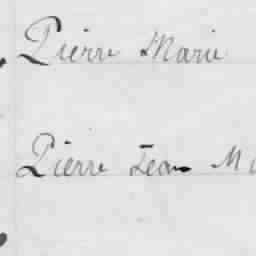 Pierre Marie
Pierre Jean